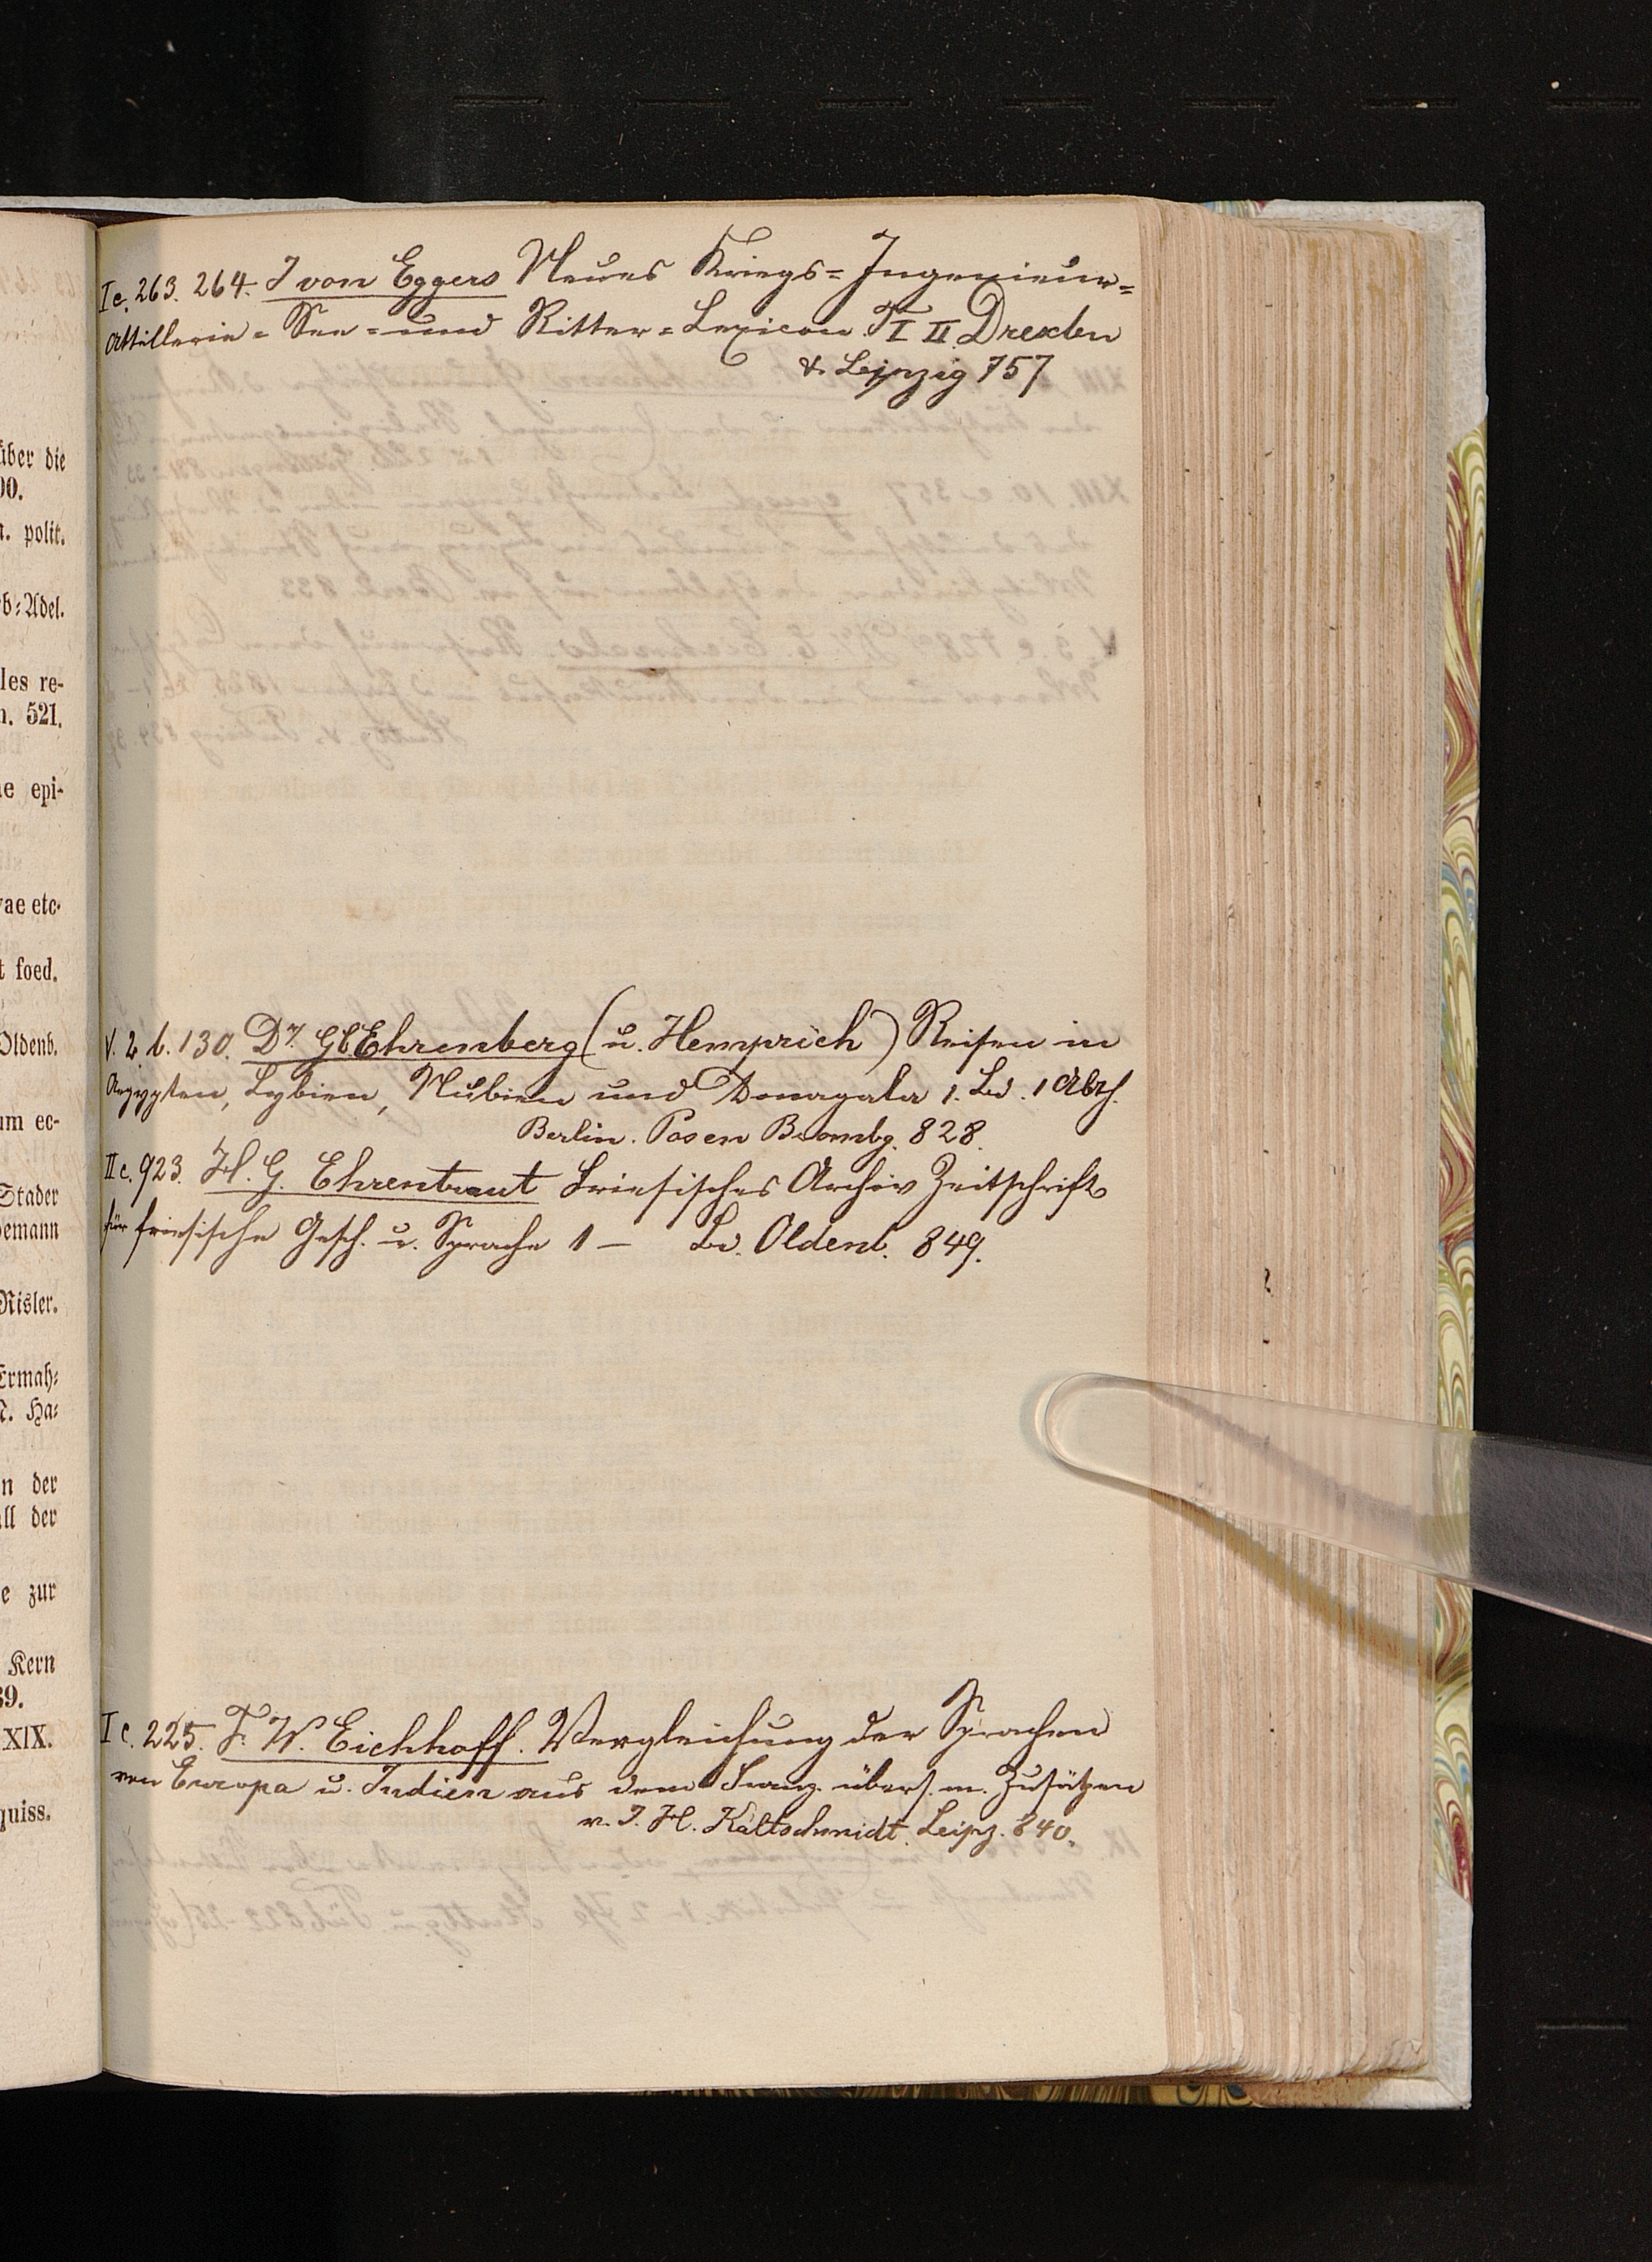 über die
00.
n. polit.
rb=Adel.
les re-
n. 521.
ne epi-
vae etc.
t foed.
Oldenb.
um ec-
Stader
demann
Risler.
Ermah=
N. Ha=
n der
all der
e zur
Kern
39.
XIX.
quiss.
I c. 263. 264. J von Eggers Neues Kriegs= Ingenieur=
Artillerie= See= und Ritter= Lexicon T I II Dresden
& Leipzig 757
V. 2 b. 130. Dr. Ehrenberg (u. Hemprich) Reisen in
Aegypten, Lybien, Nubien und Dongala 1. Bd. 1 Abth.
Berlin. Posen Brombg. 828.
II c. 923. H. G. Ehrentraut Friesisches Archiv Zeitschrift
für friesische Gesch. u. Sprache 1 — Bd. Oldenb. 849.
I c. 225. F. W. Eichhoff. Vergleichung der Sprachen
von Europa u. Indien aus dem Franz. übers. m. Zusätzen
v. J. H. Kaltschmidt. Leipz. 840.